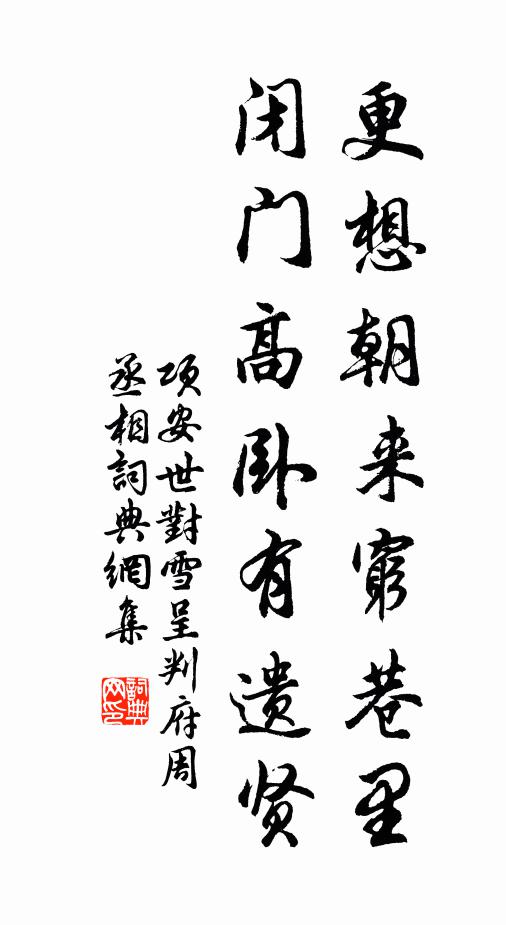 更想朝来窮巷里
闭门高卧有遗贤
项安世對雪呈判府周
丞相詞典網集
詞典网印